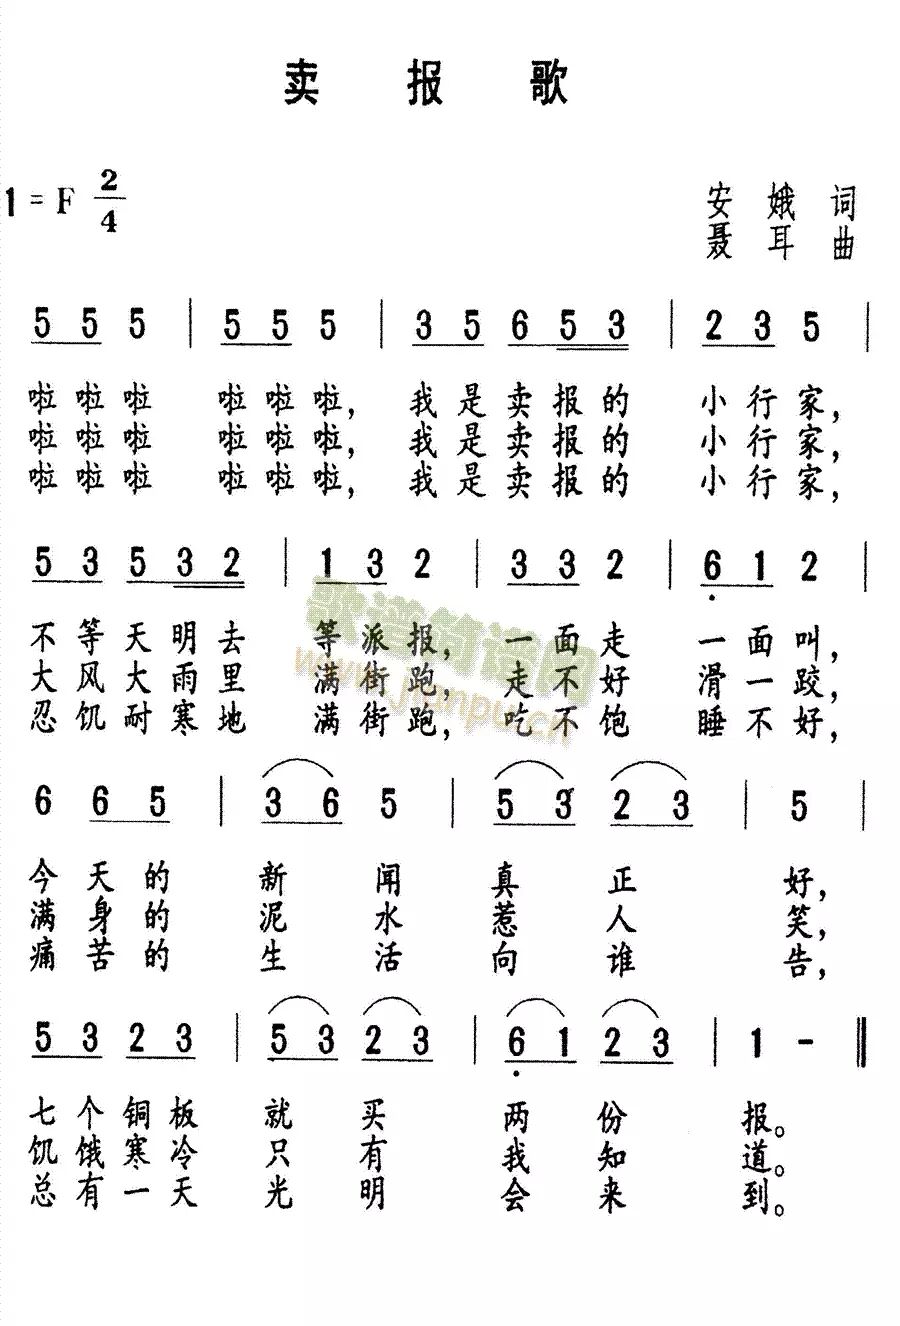 卖 报 歌
1 = F 2/4
安 娥 词
聂 耳 曲
5 5 5 | 5 5 5 | 3 5 6 5 3 | 2 3 5 |
啦啦啦 啦啦啦，我是卖报的 小行家，
啦啦啦 啦啦啦，我是卖报的 小行家，
啦啦啦 啦啦啦，我是卖报的 小行家，
5 3 5 3 2 | 1 3 2 | 3 3 2 | 6̣ 1 2 |
不等天明去 等派报，一面走 一面叫，
大风大雨里 满街跑，走不好 滑一跤，
忍饥耐寒地 满街跑，吃不饱 睡不好，
6 6 5 | 3 6 5 | 5 3 2 3 | 5 |
今天的 新闻 真正 好，
满身的 泥水 惹人 笑，
痛苦的 生活 向谁 告，
5 3 2 3 | 5 3 2 3 | 6̣ 1 2 3 | 1 - ‖
七个铜板 就买 两份 报。
饥饿寒冷 只有 我知 道。
总有一天 光明 会来 到。
歌谱简谱网
www.jianpu.cn